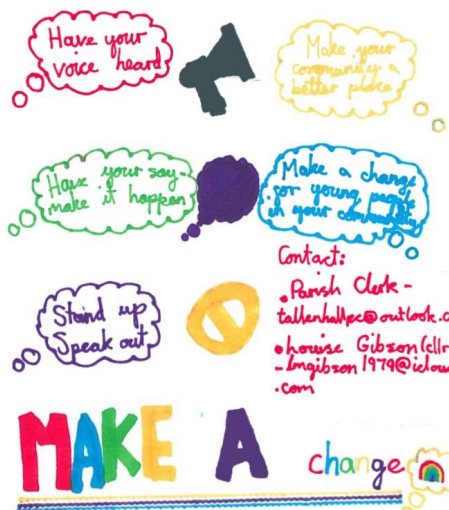 Have your
voice heard
Make your
community a
better place
Have your say -
make it happen
Make a change
for young people
in your community
Stand up
Speak out
Contact:
• Parish Clerk -
tallenhallpc@outlook.c
• Louise Gibson (cllr
- lmgibson1979@iclou
.com
MAKE A change